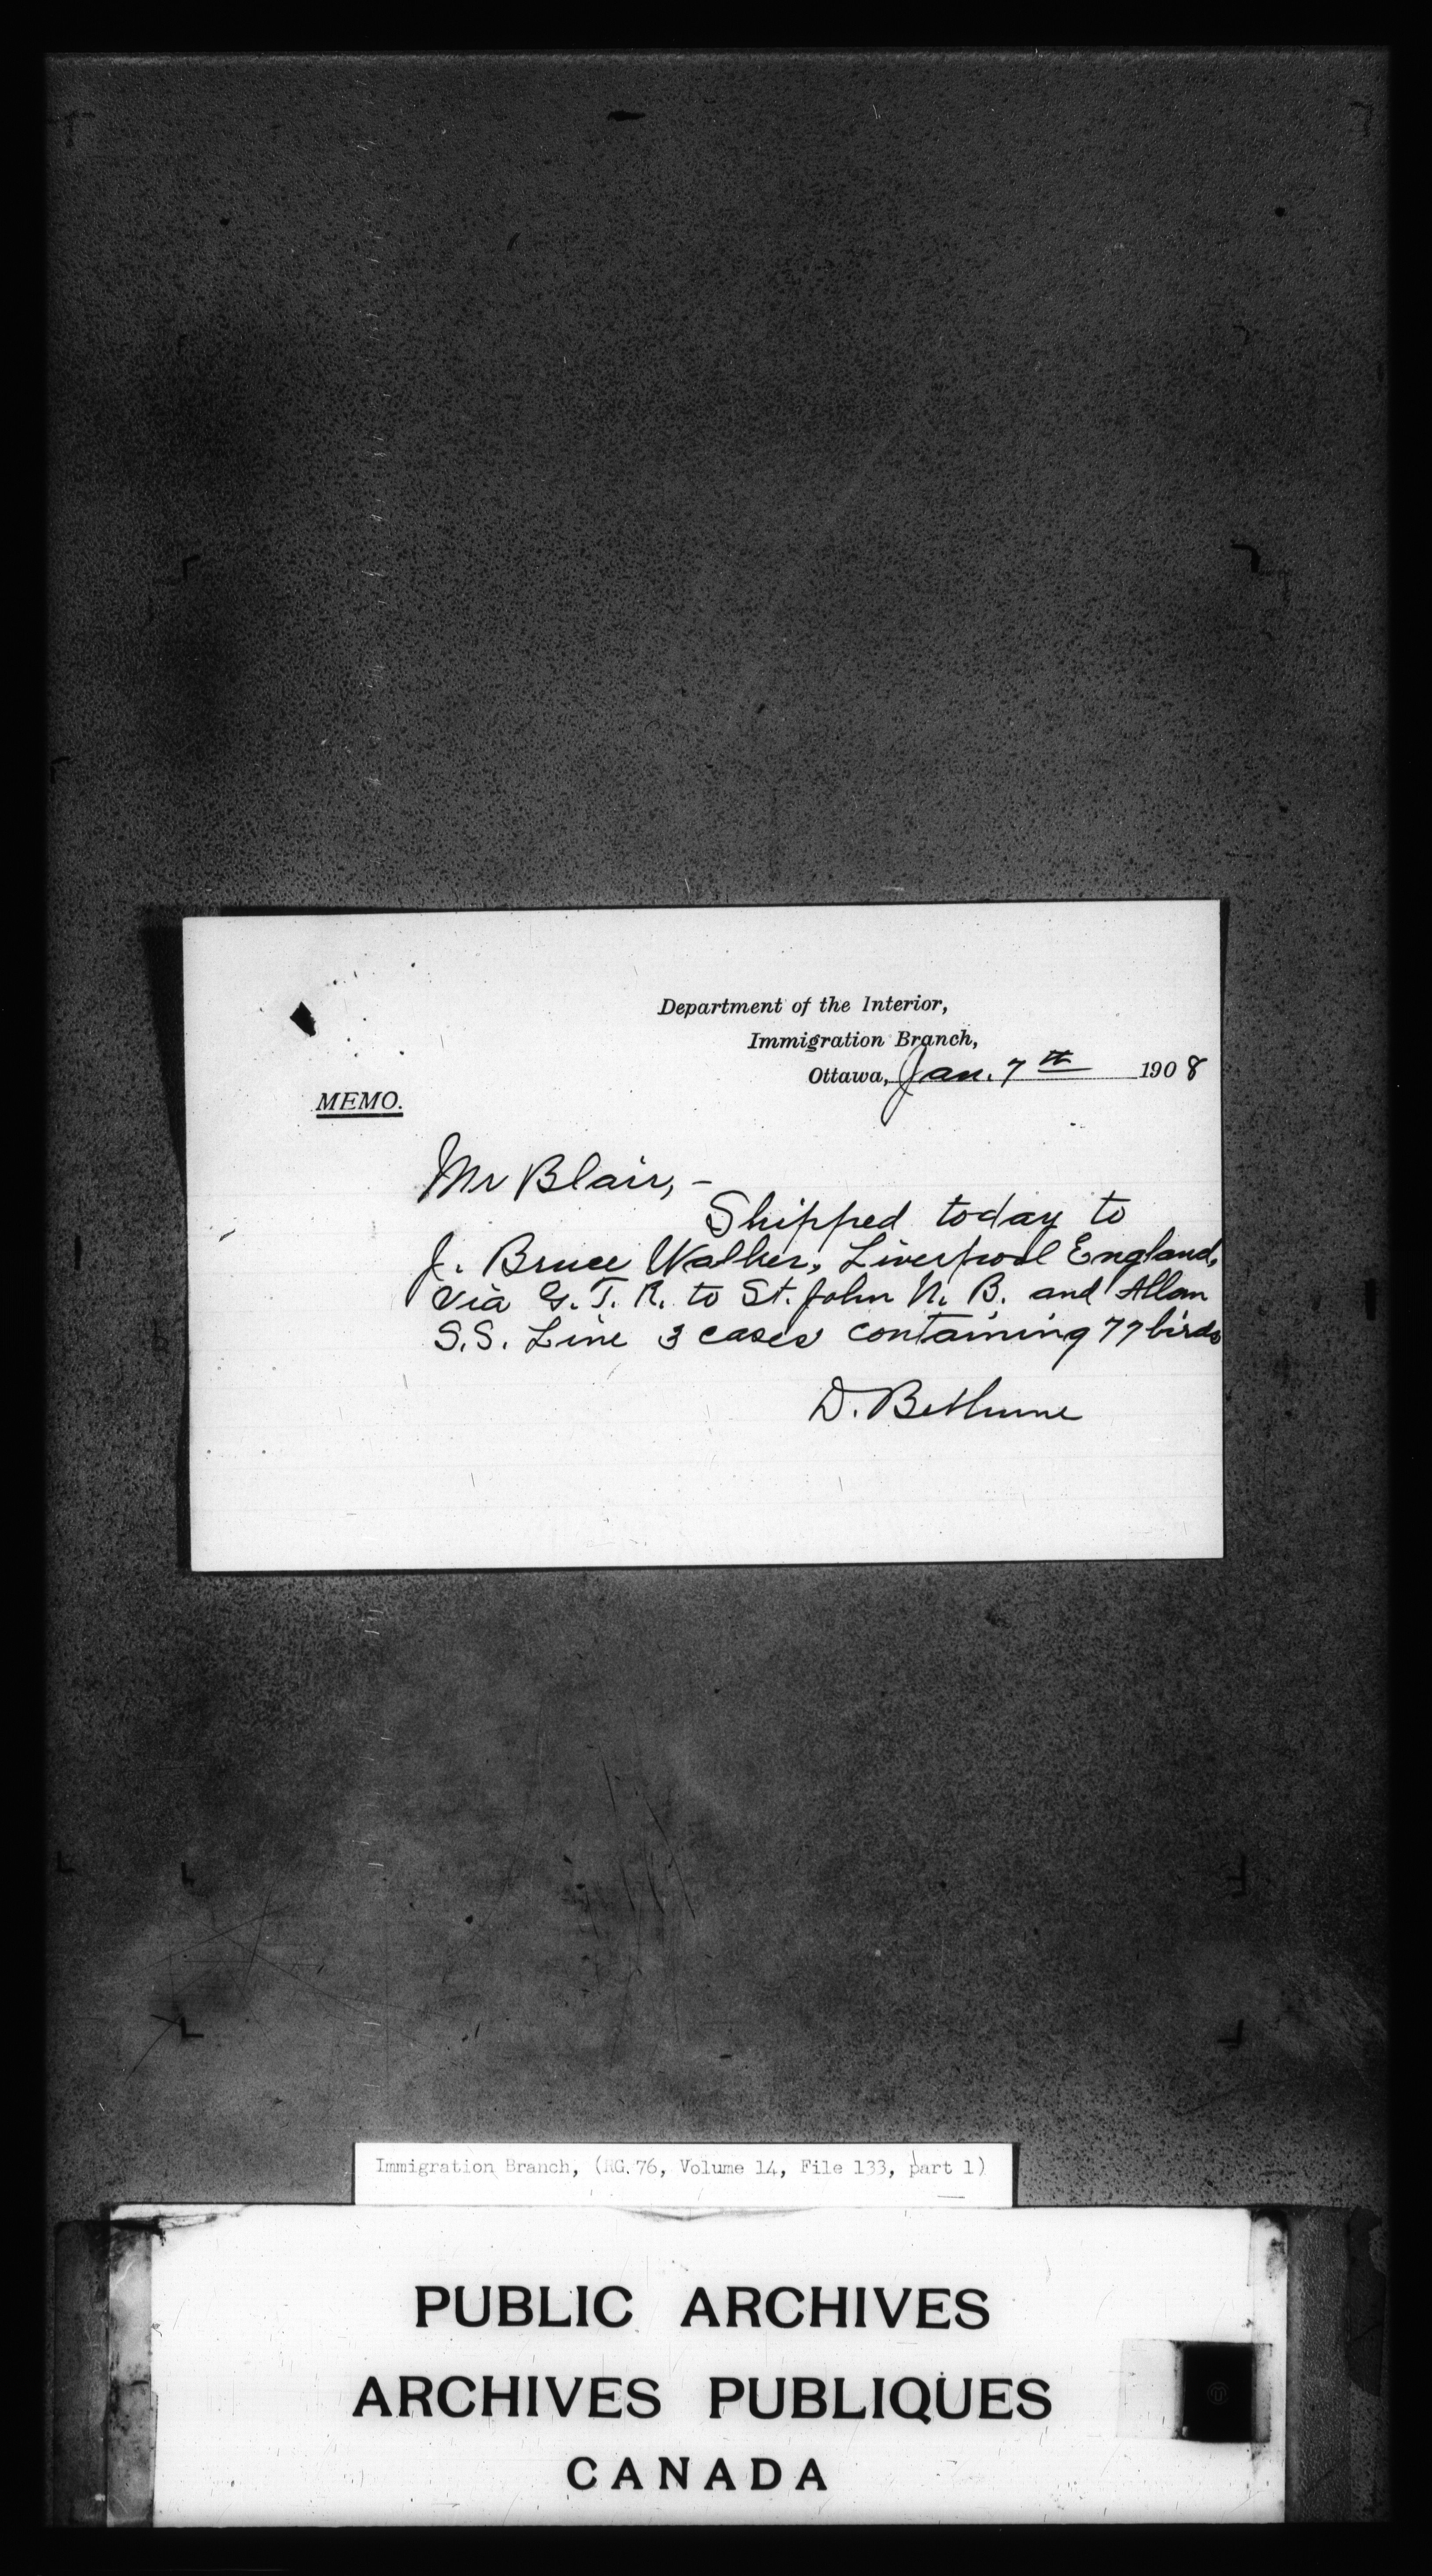 Department of the Interior,
Immigration Branch,
Ottawa, Jan. 7th 1908
MEMO.
Mr Blair, -
Shipped today to
J. Bruce Walker, Liverpool England,
via G. T. R. to St. John N. B. and Allan
S.S. Line 3 cases containing 77 birds
D. Bethune
Immigration Branch, (RG.76, Volume 14, File 133, part 1)
PUBLIC ARCHIVES
ARCHIVES PUBLIQUES
CANADA